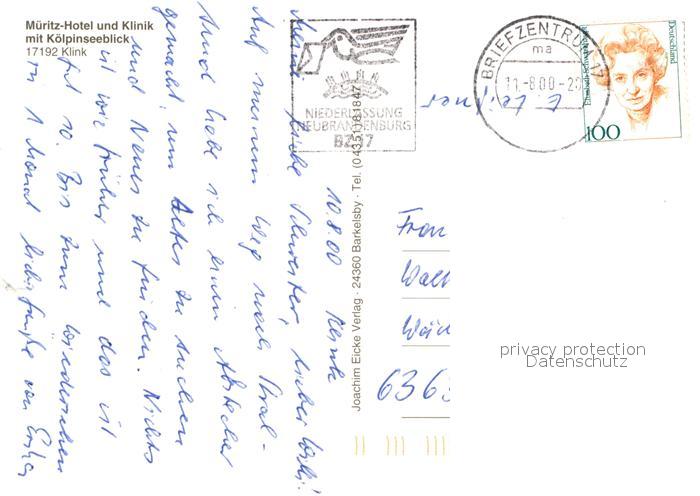 Müritz-Hotel und Klinik
mit Kölpinseeblick
17192 Klink
10.8.00 Klink
Meine liebe Schwester, lieber Willi!
Auf meinem Weg nach Stral-
sund habe ich einen Abstecher
gemacht, um Altes zu suchen
und Neues zu finden. Nichts
ist wie früher und das ist
gut so. Bis zum Wiedersehen
in 1 Monat liebe Grüße von
Joachim Eicke Verlag · 24360 Barkelsby · Tel. (04351) 81847
NIEDERLASSUNG
NEUBRANDENBURG
BZ 17
BRIEFZENTRUM 17
ma
11.-8.00-2
Deutschland
100
Frau
Wal
636
privacy protection
Datenschutz